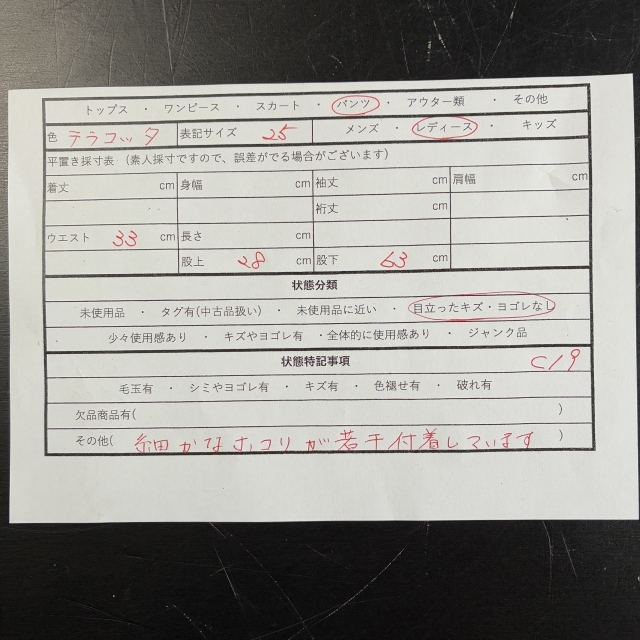 トップス ・ ワンピース ・ スカート ・ パンツ ・ アウター類 ・ その他
色 テラコッタ 表記サイズ 25 メンズ ・ レディース ・ キッズ
平置き採寸表(素人採寸ですので、誤差がでる場合がございます)
着丈 cm 身幅 cm 袖丈 cm 肩幅 cm
裄丈 cm
ウエスト 33 cm 長さ cm
股上 28 cm 股下 63 cm
状態分類
未使用品 ・ タグ有(中古品扱い) ・ 未使用に近い ・ 目立ったキズ・ヨゴレなし
少々使用感あり ・ キズやヨゴレ有 ・全体的に使用感あり ・ ジャンク品
状態特記事項 C19
毛玉有 ・ シミやヨゴレ有 ・ キズ有 ・ 色褪せ有 ・ 破れ有
欠品商品有( )
その他( 細かなホコリが若干付着しています )